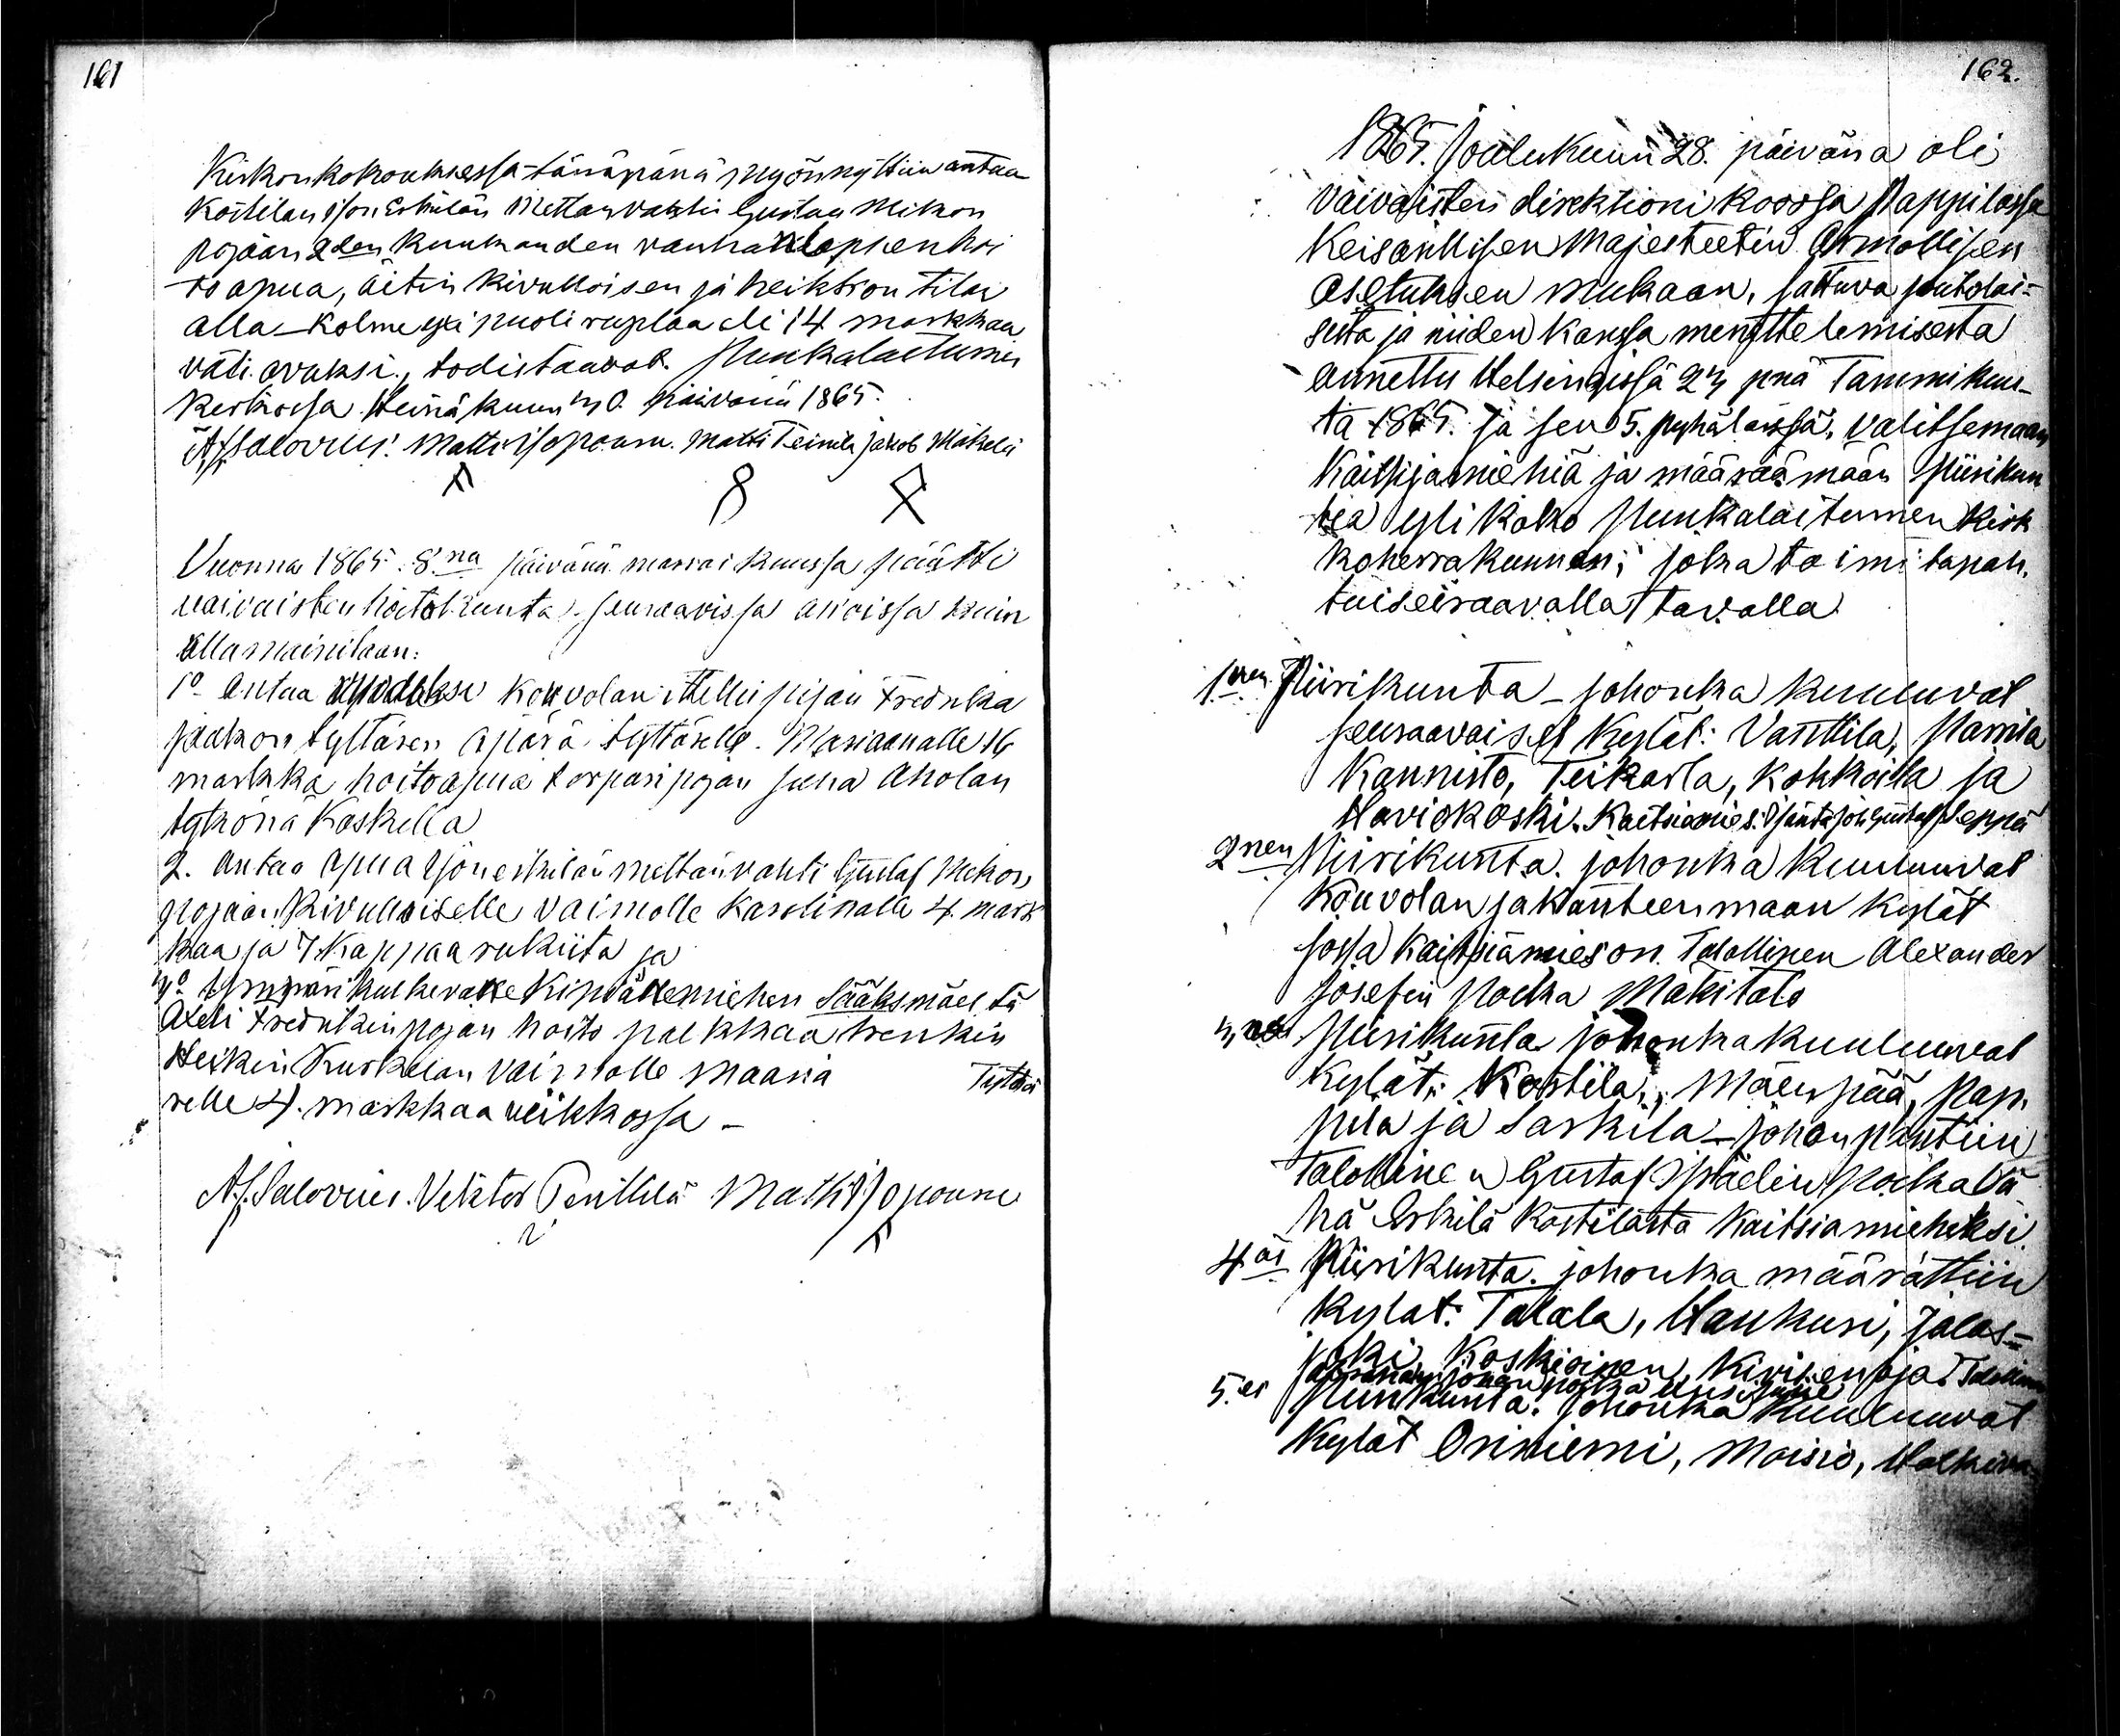 161
Kirkonkokouksessa tänäpänä myönnyttiin antaa
Kostilan Ison Eskilän Mettanvahti Gustav Mikon
pojan 2den kuukauden vanhan lapsen hoi
to apua, äitin kivulloisen ja heikon tilan
alla – Kolme ja puoli ruplaa eli 14 markkaa
väli avuksi, todistaavat. Punkalaitumen
Kirkossa Heinäkuun 30. päivänä 1865.
A. J. Salovius. Matti Isopousu. Matti Teinilä Jakob Mäkelä
Vuonna 1865. 8na päivänä marraskuussa päätti
vaivaisten hoitokunta seuraavissa asioissa kuin
alla mainitaan:
1o Antaa Kouvolan itellispiian Fredrika
Jaakon tyttären äpärä tyttärelle Mariaanalle 16
markka hoitoapua torparipojan Juha Aholan
tykönä Koskella
2. Antaa apua Ison Eskilän mettänvahti Gustaf Mikon
pojan kivulloiselle vaimolle Karolinalle 4 mark
kaa ja 7 kappaa rukiita ja
3o Ympäri kulkevalle Kipiälle miehen Sääksmäeltä
Axeli Fredrikinpojan hoito palkkaa trenkin
Heikin Kurkelan Vaimolle Maaria Tyttä
relle 4. markkaa viikkossa –
A. J. Salovius. Vihtor Penttilä Matti Isopousu
162.
1865. Joulukuun 28. päivänä oli
Vaivaisten direktioni koossa Pappilassa
Keisarillisen Majesteetin Armollisen
Asetuksen mukaan, sattuva joutolai=
sista ja niiden kanssa menettelemisestä
annettu Helsingissä 23 pnä Tammikuu-
ta 1865. ja sen 5. pykälässä, valitsemaan
Kaitsijamiehiä ja määräämään Piirikun
tia yli koko Punkalaitumen Kirk
koherrakunnan; jotka toimi tapah.
tui seuraavalla tavalla
1.nen Piirikunta – johonka kuuluvat
seuraavaiset Kylät: Vanttila, Parrila
Kannisto, Teikarla, Kohkoilla ja
Haviokoski. Kaitsiamies: Isäntä Joh Gustaf Seppä
2nen Piirikunta. johonka kuuluuvat
Kouvolan ja Kanteenmaan Kylät
jossa Kaitsiamies on Talollinen Alexander
Josefin Poika Mäkitalo
3. as Piirikunta johonka kuuluuvat
Kylät: Kostila, Mäenpää, Pap.
pila ja Sarkila – johon pantiin
Talollinen Gustaf poika Vä
hä Eskilä Kostilasta Kaitsiamieheksi
4äs Piirikunta. johonka määrättiin
Kylat: Talala, Haukuri, Jalas=
joki, Koskioinen, Kivisenoja. Talollinen
Johan poika Uusi
5.es Piirikunta. johonka kuuluuvat
Kylät Oriniemi, Moisio, Halkiva